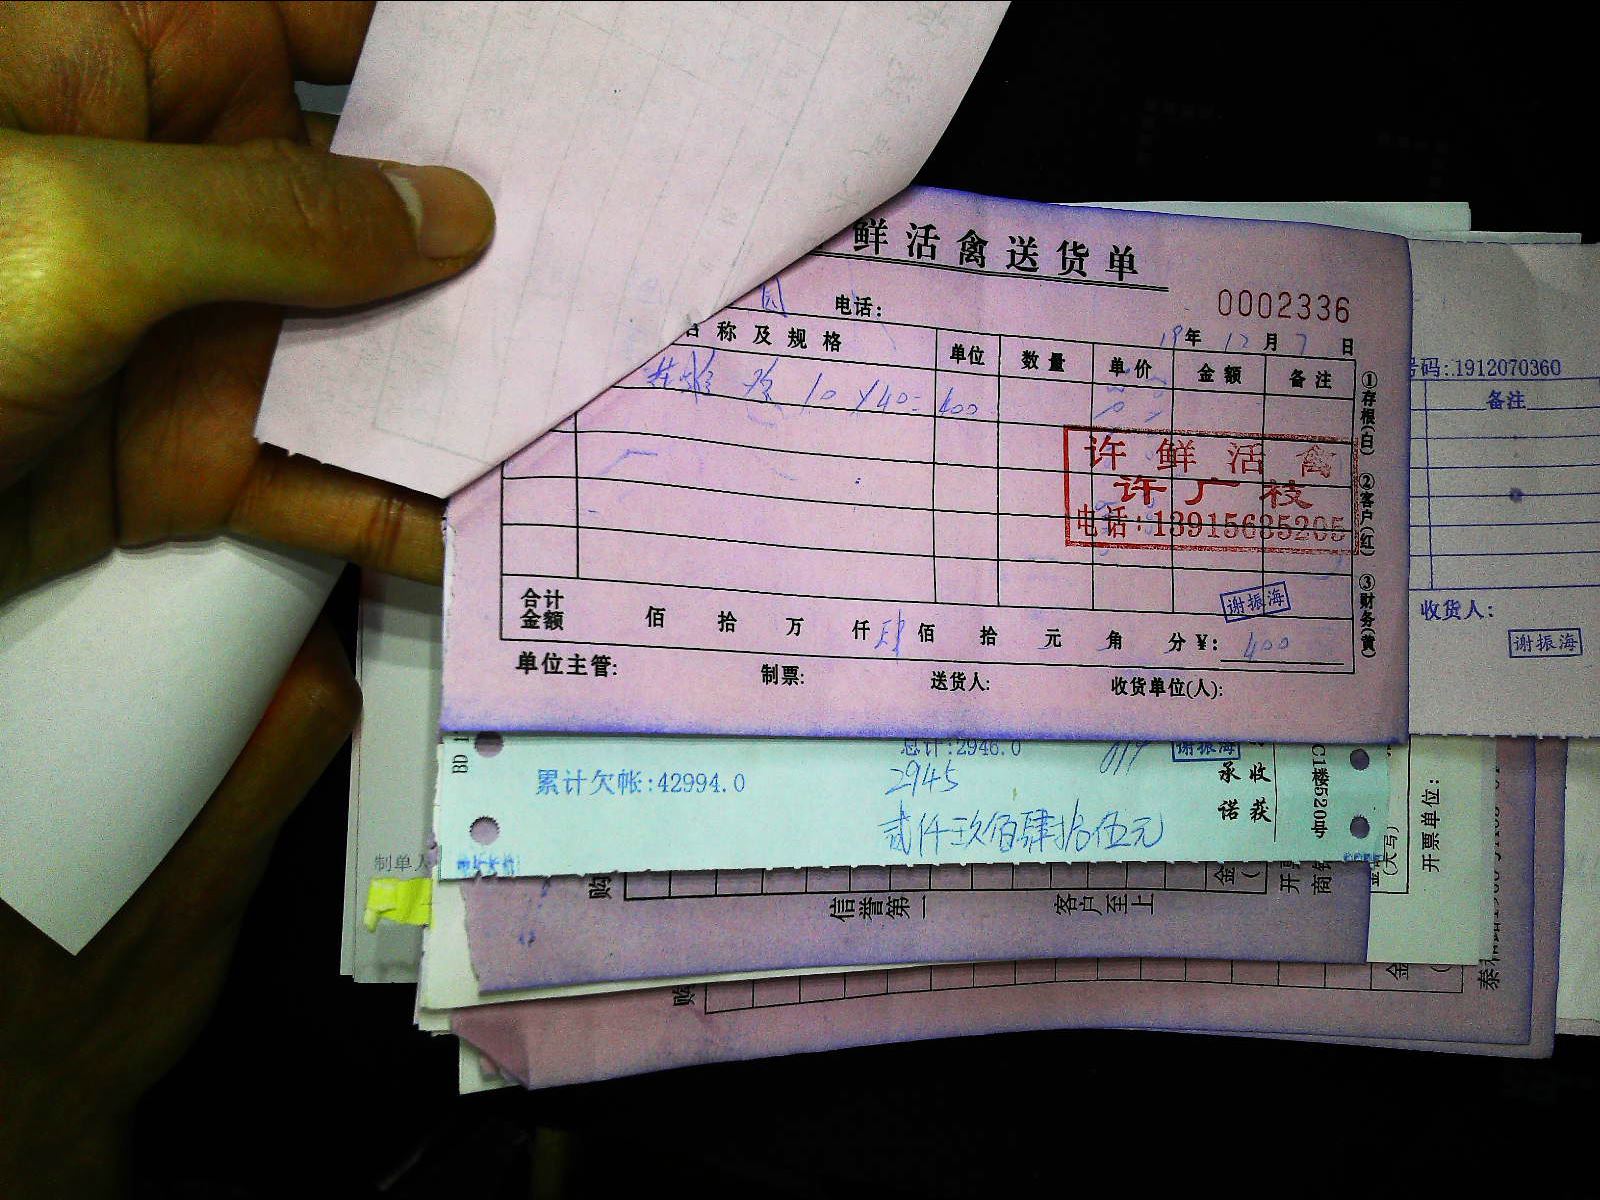 鲜活禽送货单
电话:
0002336
19年 12月 7日
名称及规格 单位 数量 单价 金额 备注
鸡 10×40=400
①存根(白) ②客户(红) ③财务(黄)
许鲜活禽
许广枝
电话:13915635205
谢振海
合计金额 佰 拾 万 仟 肆佰 拾 元 角 分 ¥: 400
单位主管: 制票: 送货人: 收货单位(人):
号码:1912070360
备注
收货人:
谢振海
总计:2946.0
谢振海
累计欠帐:42994.0
2945
贰仟玖佰肆拾伍元
承诺 收获
C1楼520中
(大写)
开票单位:
制单人
信誉第一 客户至上